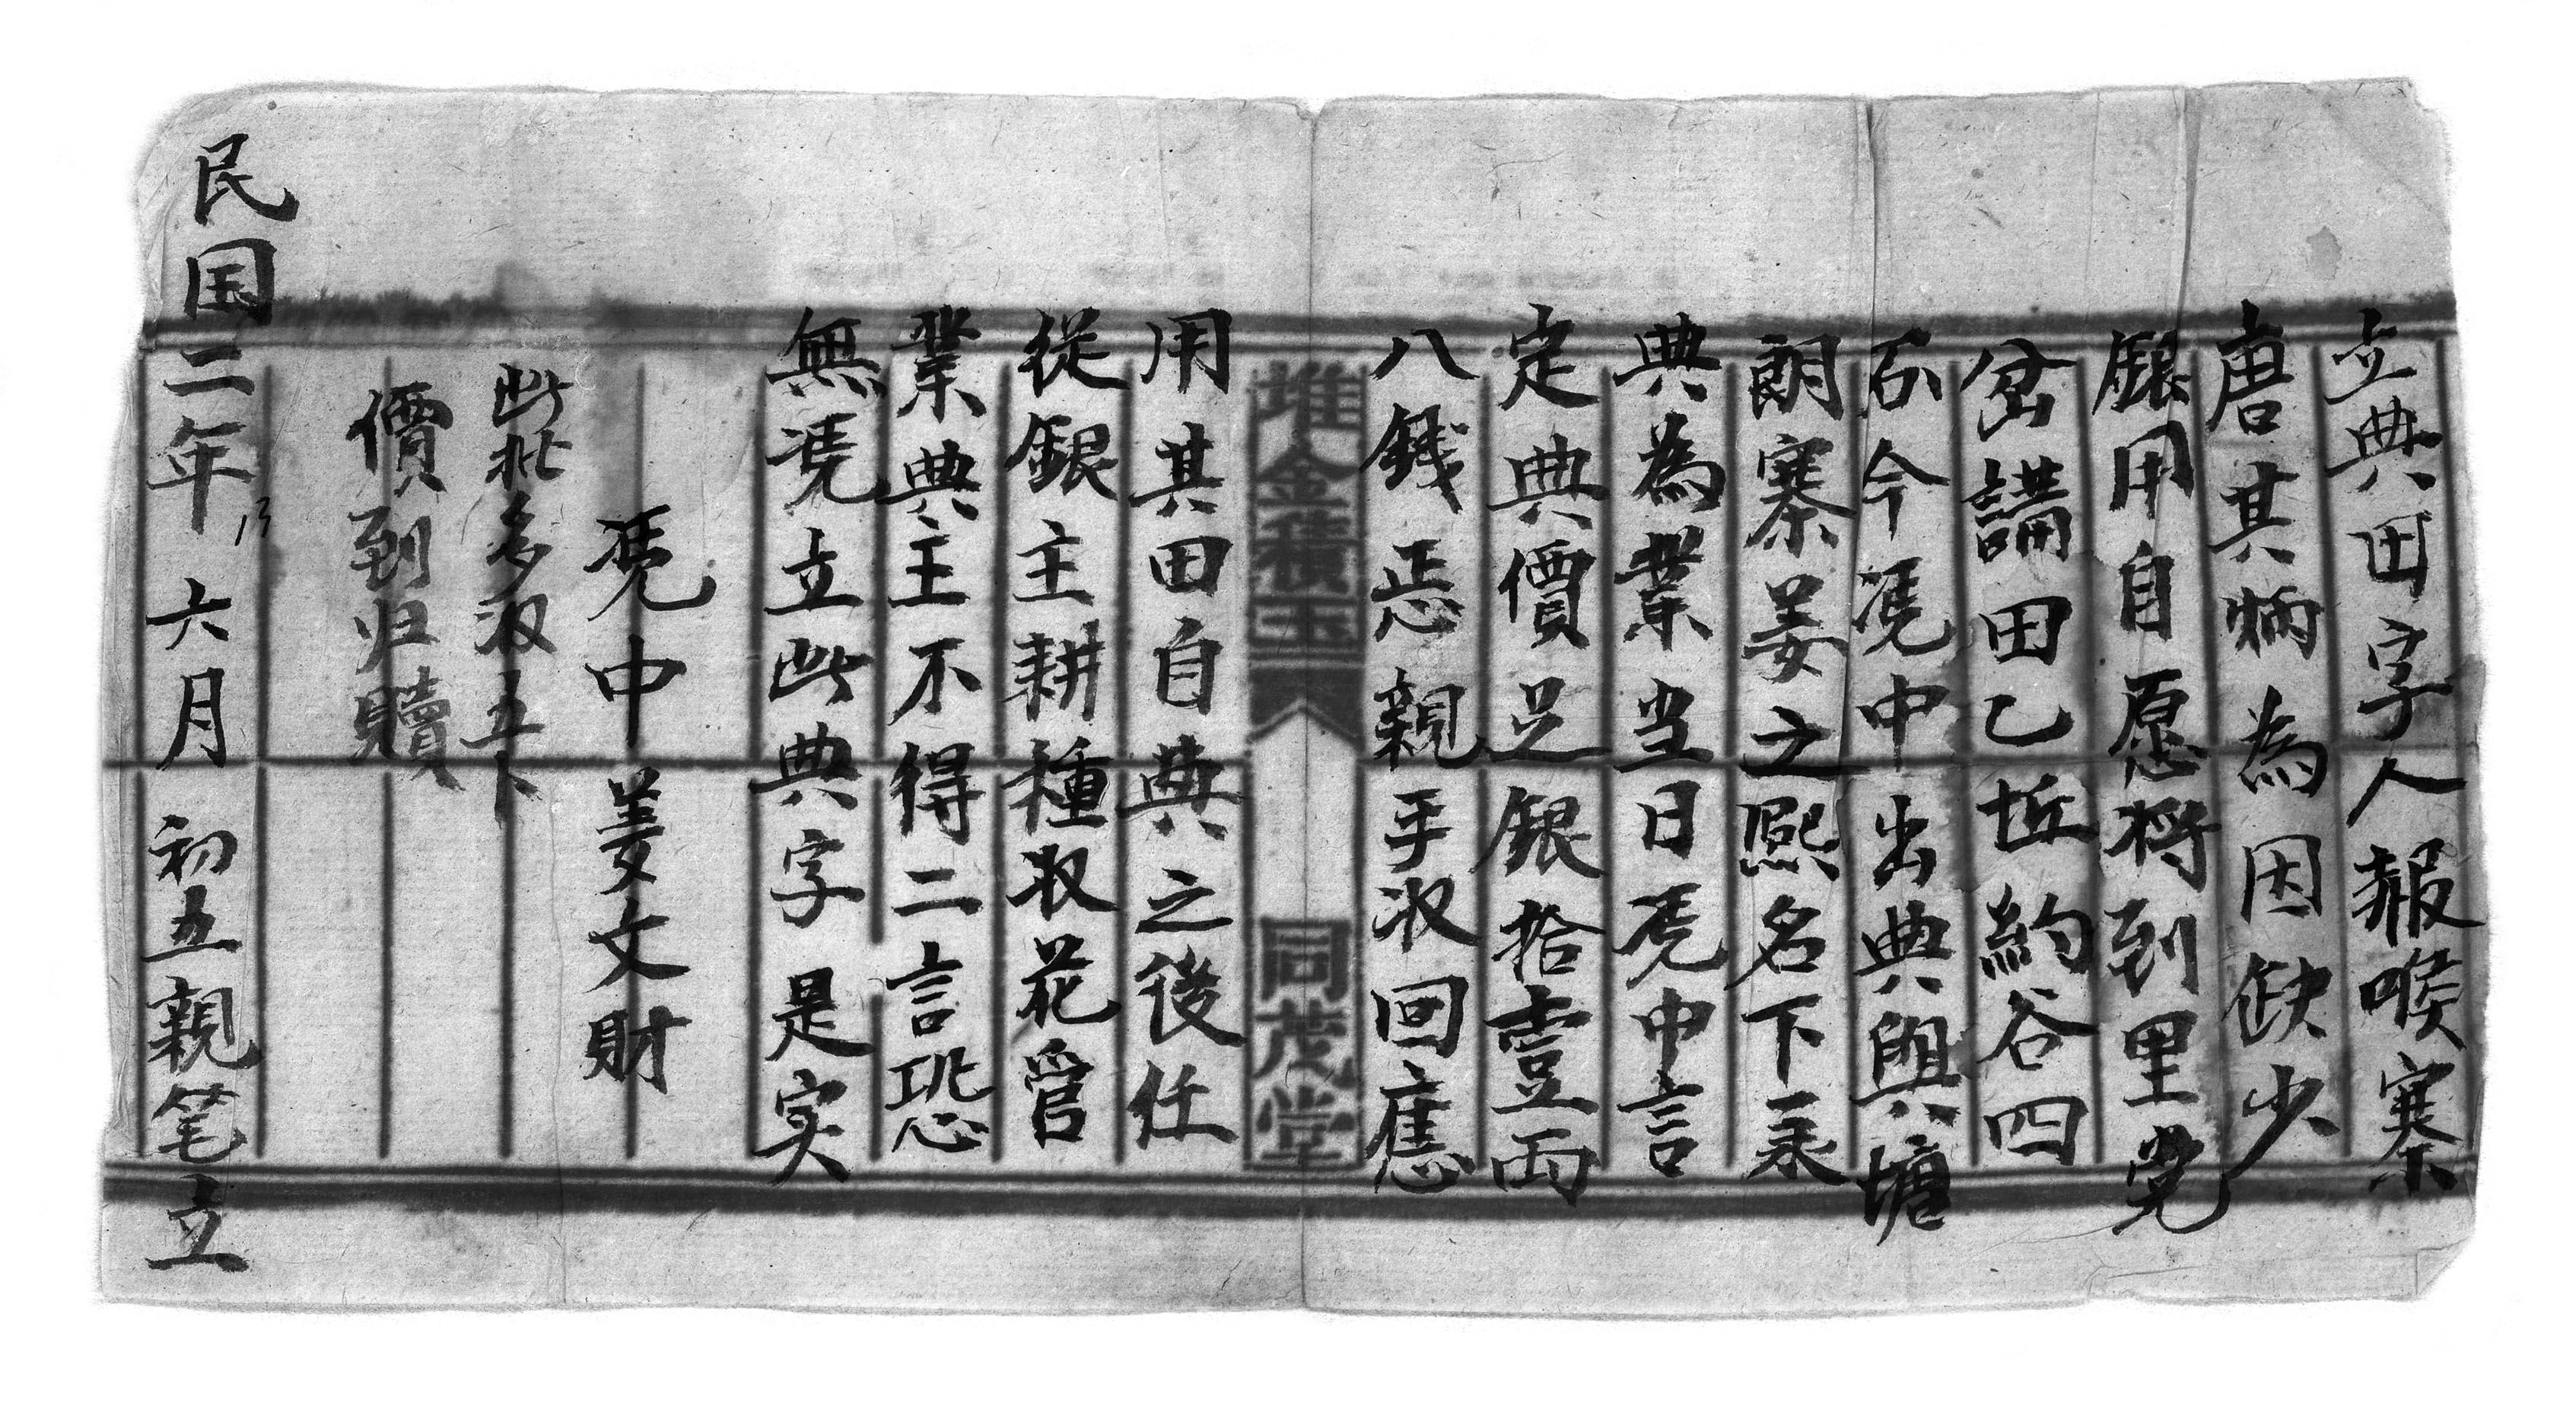 立典田字人報喉寨
唐其炳為因缺少
銀用自愿将到里党
岔講田乙坵約谷四
石今凭中出典與塘
朗寨姜之熙名下承
典為業当日凭中言
定典價足銀拾壹両
八錢忎親手収回應
堆金積玉
同茂堂
用其田自典之後任
從銀主耕種収花管
業典主不得二言恐
無凭立此典字是实
凭中姜文財
此批多収五卜
價到归贖
民国二年六月初五親笔立